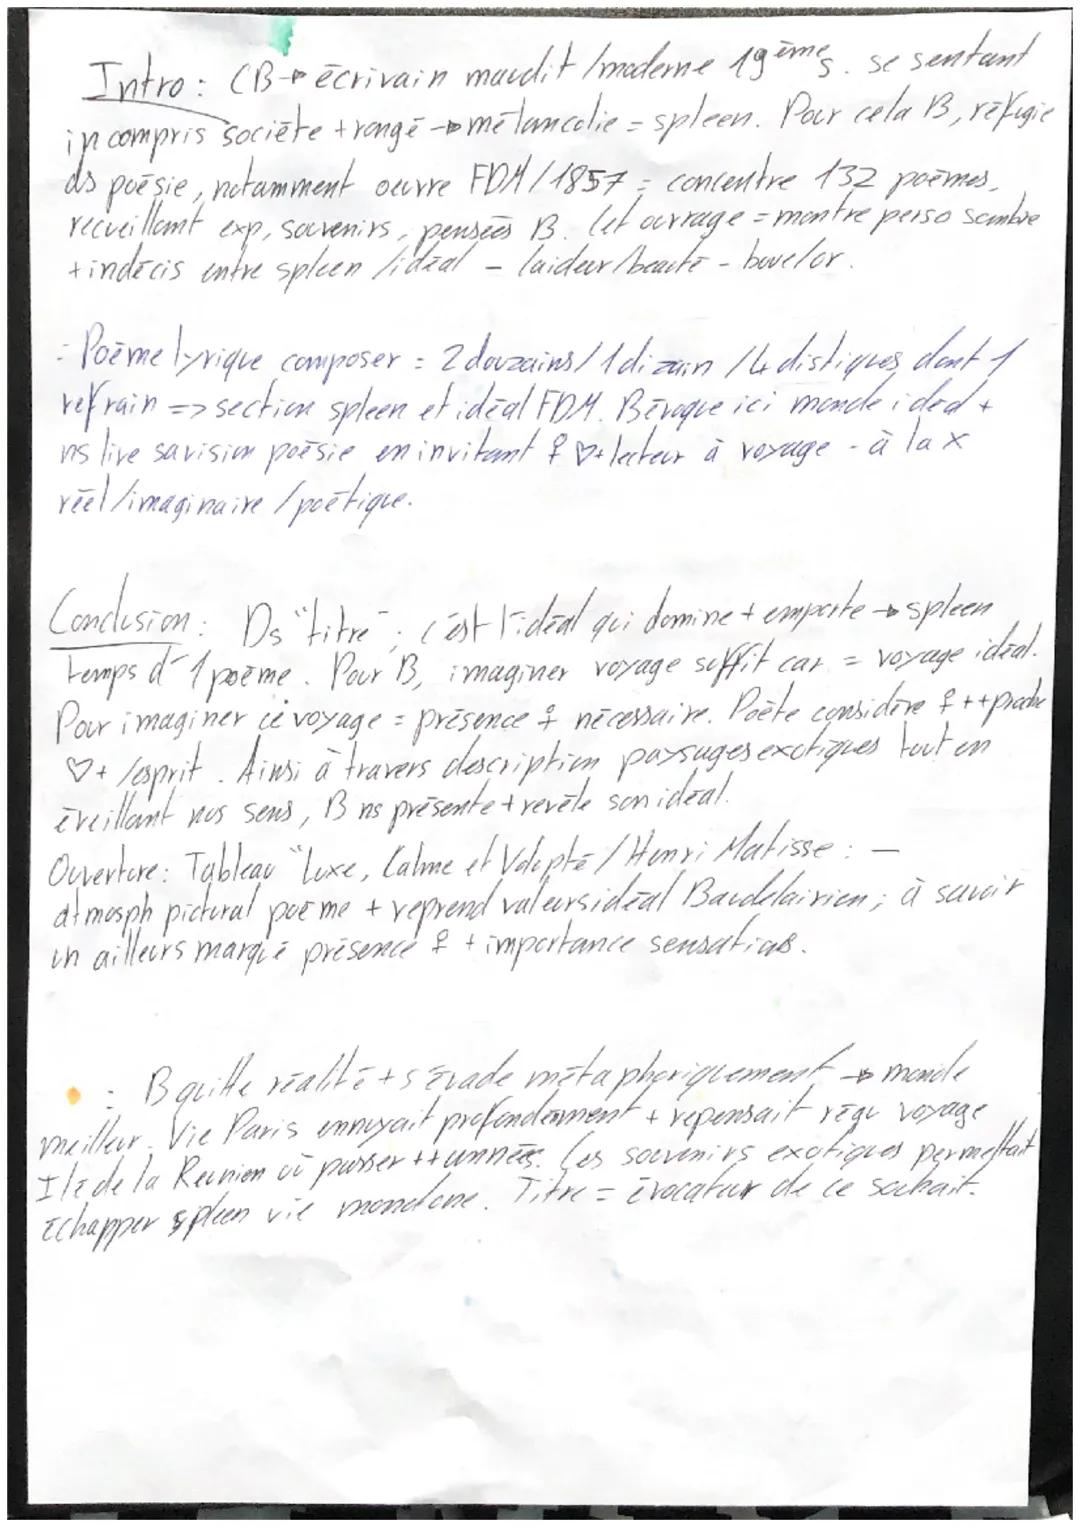 Intro : CB→ écrivain maudit/moderne 19èmes. se sentant
incompris société + rongé → mélancolie = spleen. Pour cela B, réfugie
ds poésie, notamment œuvre FDM/1857 = concentre 132 poèmes,
recueillant exp, souvenirs, pensées B. Cet ouvrage = montre perso sombre
+ indécis entre spleen/idéal - laideur/beauté - boue/or.
- Poème lyrique composer = 2 douzains/1 dizain /4 distiques dont 1
refrain => section spleen et idéal FDM. B évoque ici monde idéal +
ns livre sa vision poésie en invitant ♀ ♡+ lecteur à voyage - à la x
réel/imaginaire/poétique.
Conclusion : Ds "titre", c'est l'idéal qui domine + emporte → spleen
temps d'1 poème. Pour B, imaginer voyage suffit car = voyage idéal.
Pour imaginer ce voyage = présence ♀ nécessaire. Poète considère ♀ ++ proche
♡+ /esprit. Ainsi à travers description paysages exotiques tout en
éveillant nos sens, B ns présente + révèle son idéal.
Ouverture : Tableau "Luxe, Calme et Volupté/Henri Matisse : -
atmosph pictural poème + reprend valeurs idéal Baudelairien; à savoir
un ailleurs marqué présence ♀ + importance sensations.
: B quitte réalité + s'évade métaphoriquement → monde
meilleur. Vie Paris ennuyait profondemment + repensait régu voyage
Ile de la Réunion où passer ++ années. Ces souvenirs exotiques permettait
échapper spleen vie mondane. Titre = évocateur de ce souhait.